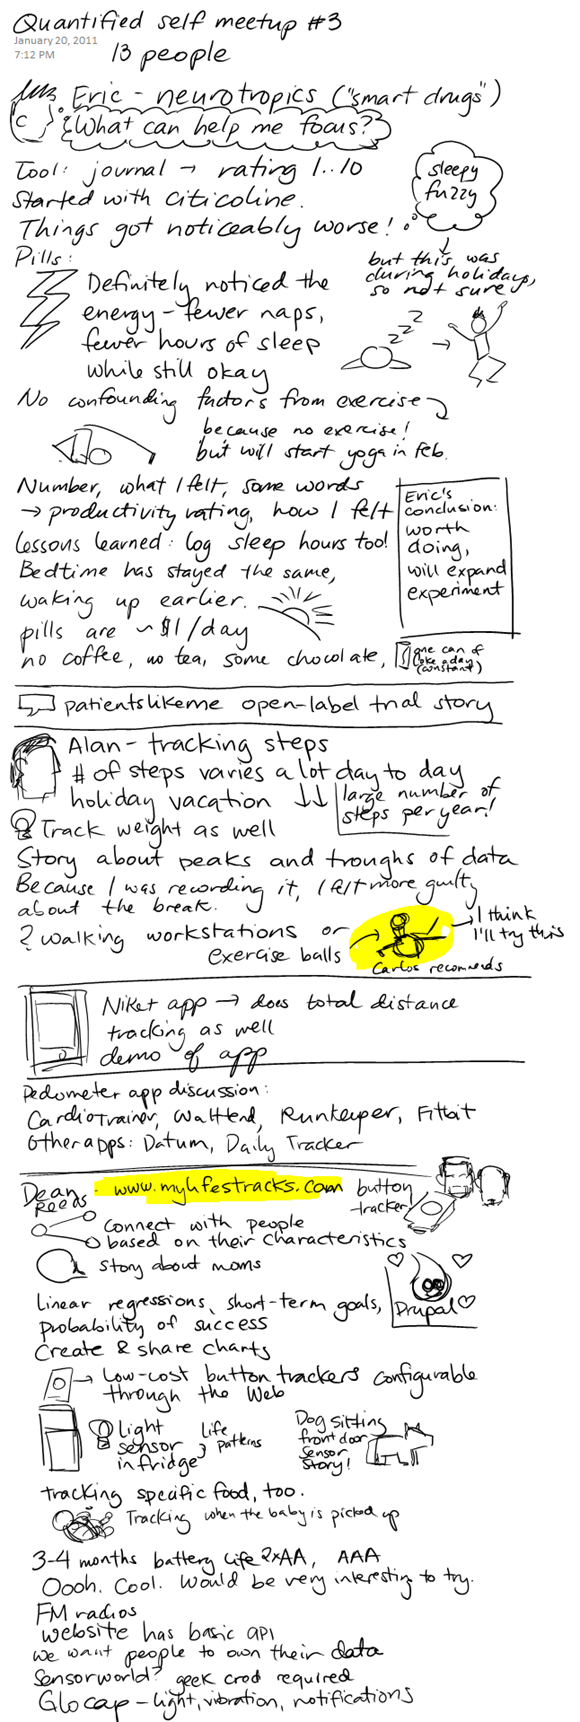 Quantified self meetup #3
January 20, 2011
7:12 PM
13 people
Eric - neurotropics ("smart drugs")
What can help me focus?
Tool: journal → rating 1..10
sleepy
fuzzy
Started with citicoline.
Things got noticeably worse!
but this was
during holidays,
so not sure
Pills:
Definitely noticed the
energy - fewer naps,
fewer hours of sleep
while still okay
z z z
No confounding factors from exercise
because no exercise!
but will start yoga in Feb.
Number, what I felt, some words
→ productivity rating, how I felt
Lessons learned: log sleep hours too!
Bedtime has stayed the same,
waking up earlier.
pills are ~$1/day
no coffee, no tea, some chocolate,
one can of
Coke a day
(constant)
Eric's
conclusion:
worth
doing,
will expand
experiment
patientslikeme open-label trial story
Alan - tracking steps
# of steps varies a lot day to day
holiday vacation ↓↓
large number of
steps per year!
Track weight as well
Story about peaks and troughs of data
Because I was recording it, I felt more guilty
about the break.
? walking workstations or
exercise balls
→ I think
I'll try this
Carlos recommends
Niket app → does total distance
tracking as well
demo of app
Pedometer app discussion:
CardioTrainer, Runkeeper, Fitbit
Other apps: Datum, Daily Tracker
Dean - www.mylifestracks.com
button
tracker
Connect with people
based on their characteristics
story about moms
Linear regressions, short-term goals,
probability of success
Create & share charts
Drupal
→ Low-cost button trackers configurable
through the Web
Light
sensor
in fridge
Life
patterns
Dog sitting
front door
sensor
story!
tracking specific food, too.
Tracking when the baby is picked up
3-4 months battery life 2xAA, AAA
Oooh. Cool. Would be very interesting to try.
FM radios
website has basic API
we want people to own their data
Sensorworld? geek cred required
Glocap - light, vibration, notifications